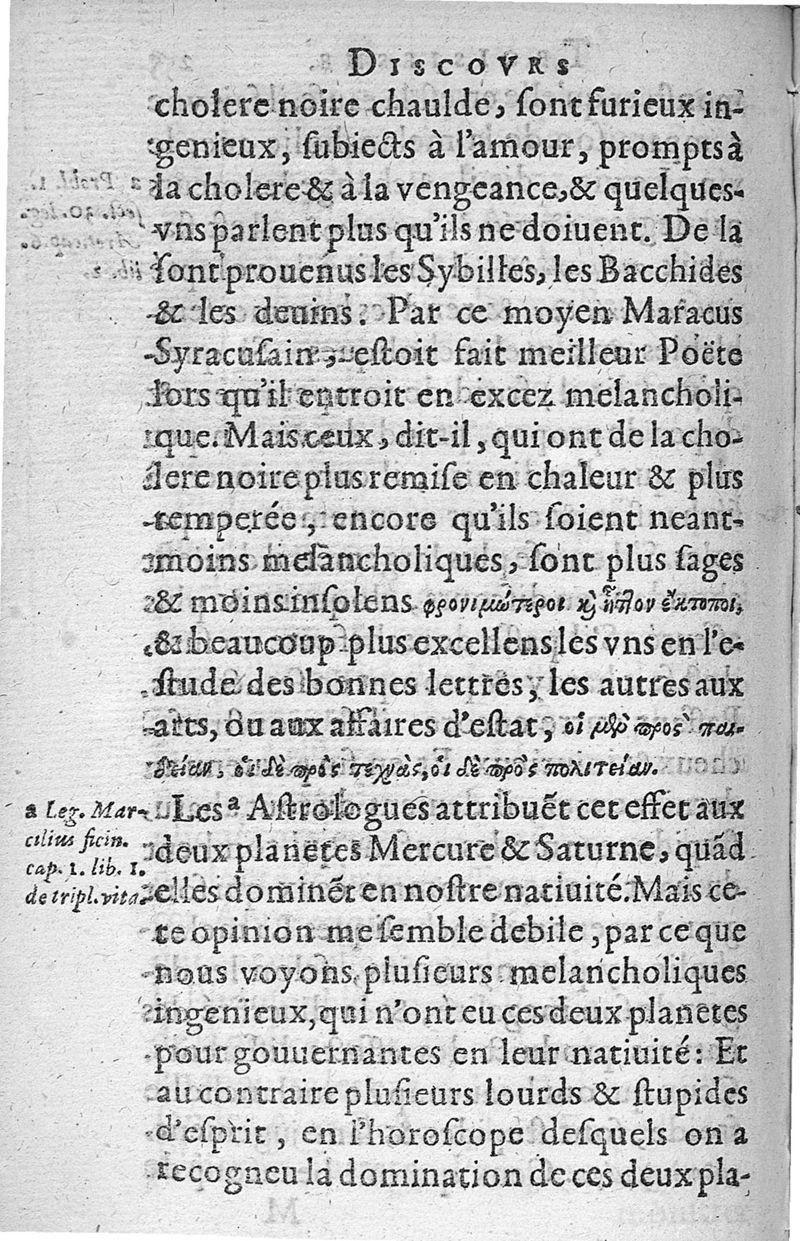 DISCOVRS
cholere noire chaulde, ſont furieux in-
genieux, ſubiects à l'amour, prompts à
la cholere & à la vengeance, & quelques-
vns parlent plus qu'ils ne doiuent. De la
ſont prouenus les Sybilles, les Bacchides
& les deuins. Par ce moyen Maracus
Syracuſain, eſtoit fait meilleur Poëte
lors qu'il entroit en excez melancholi-
que. Mais ceux, dit-il, qui ont de la cho-
lere noire plus remiſe en chaleur & plus
temperée, encore qu'ils ſoient neant-
moins melancholiques, ſont plus ſages
& moins inſolens φρονιμώτεροι ϗ ἧτλον ἔκτοποι,
& beaucoup plus excellens les vns en l'e-
ſtude des bonnes lettres, les autres aux
arts, ou aux affaires d'eſtat, οἱ μὲν πρὸς παι-
δείαν, οἱ δὲ πρὸς τεχνὰς, οἱ δὲ πρὸς πολιτείαν.
Les ª Aſtrologues attribuẽt cet effet aux
a Leg. Mar-
cilius ficin.
cap. 1. lib. 1.
de tripl. vita.
deux planetes Mercure & Saturne, quãd
elles dominẽt en noſtre natiuité. Mais ce-
te opinion me ſemble debile, par ce que
nous voyons pluſieurs melancholiques
ingenieux, qui n'ont eu ces deux planetes
pour gouuernantes en leur natiuité: Et
au contraire pluſieurs lourds & ſtupides
d'eſprit, en l'horoſcope deſquels on a
recogneu la domination de ces deux pla-